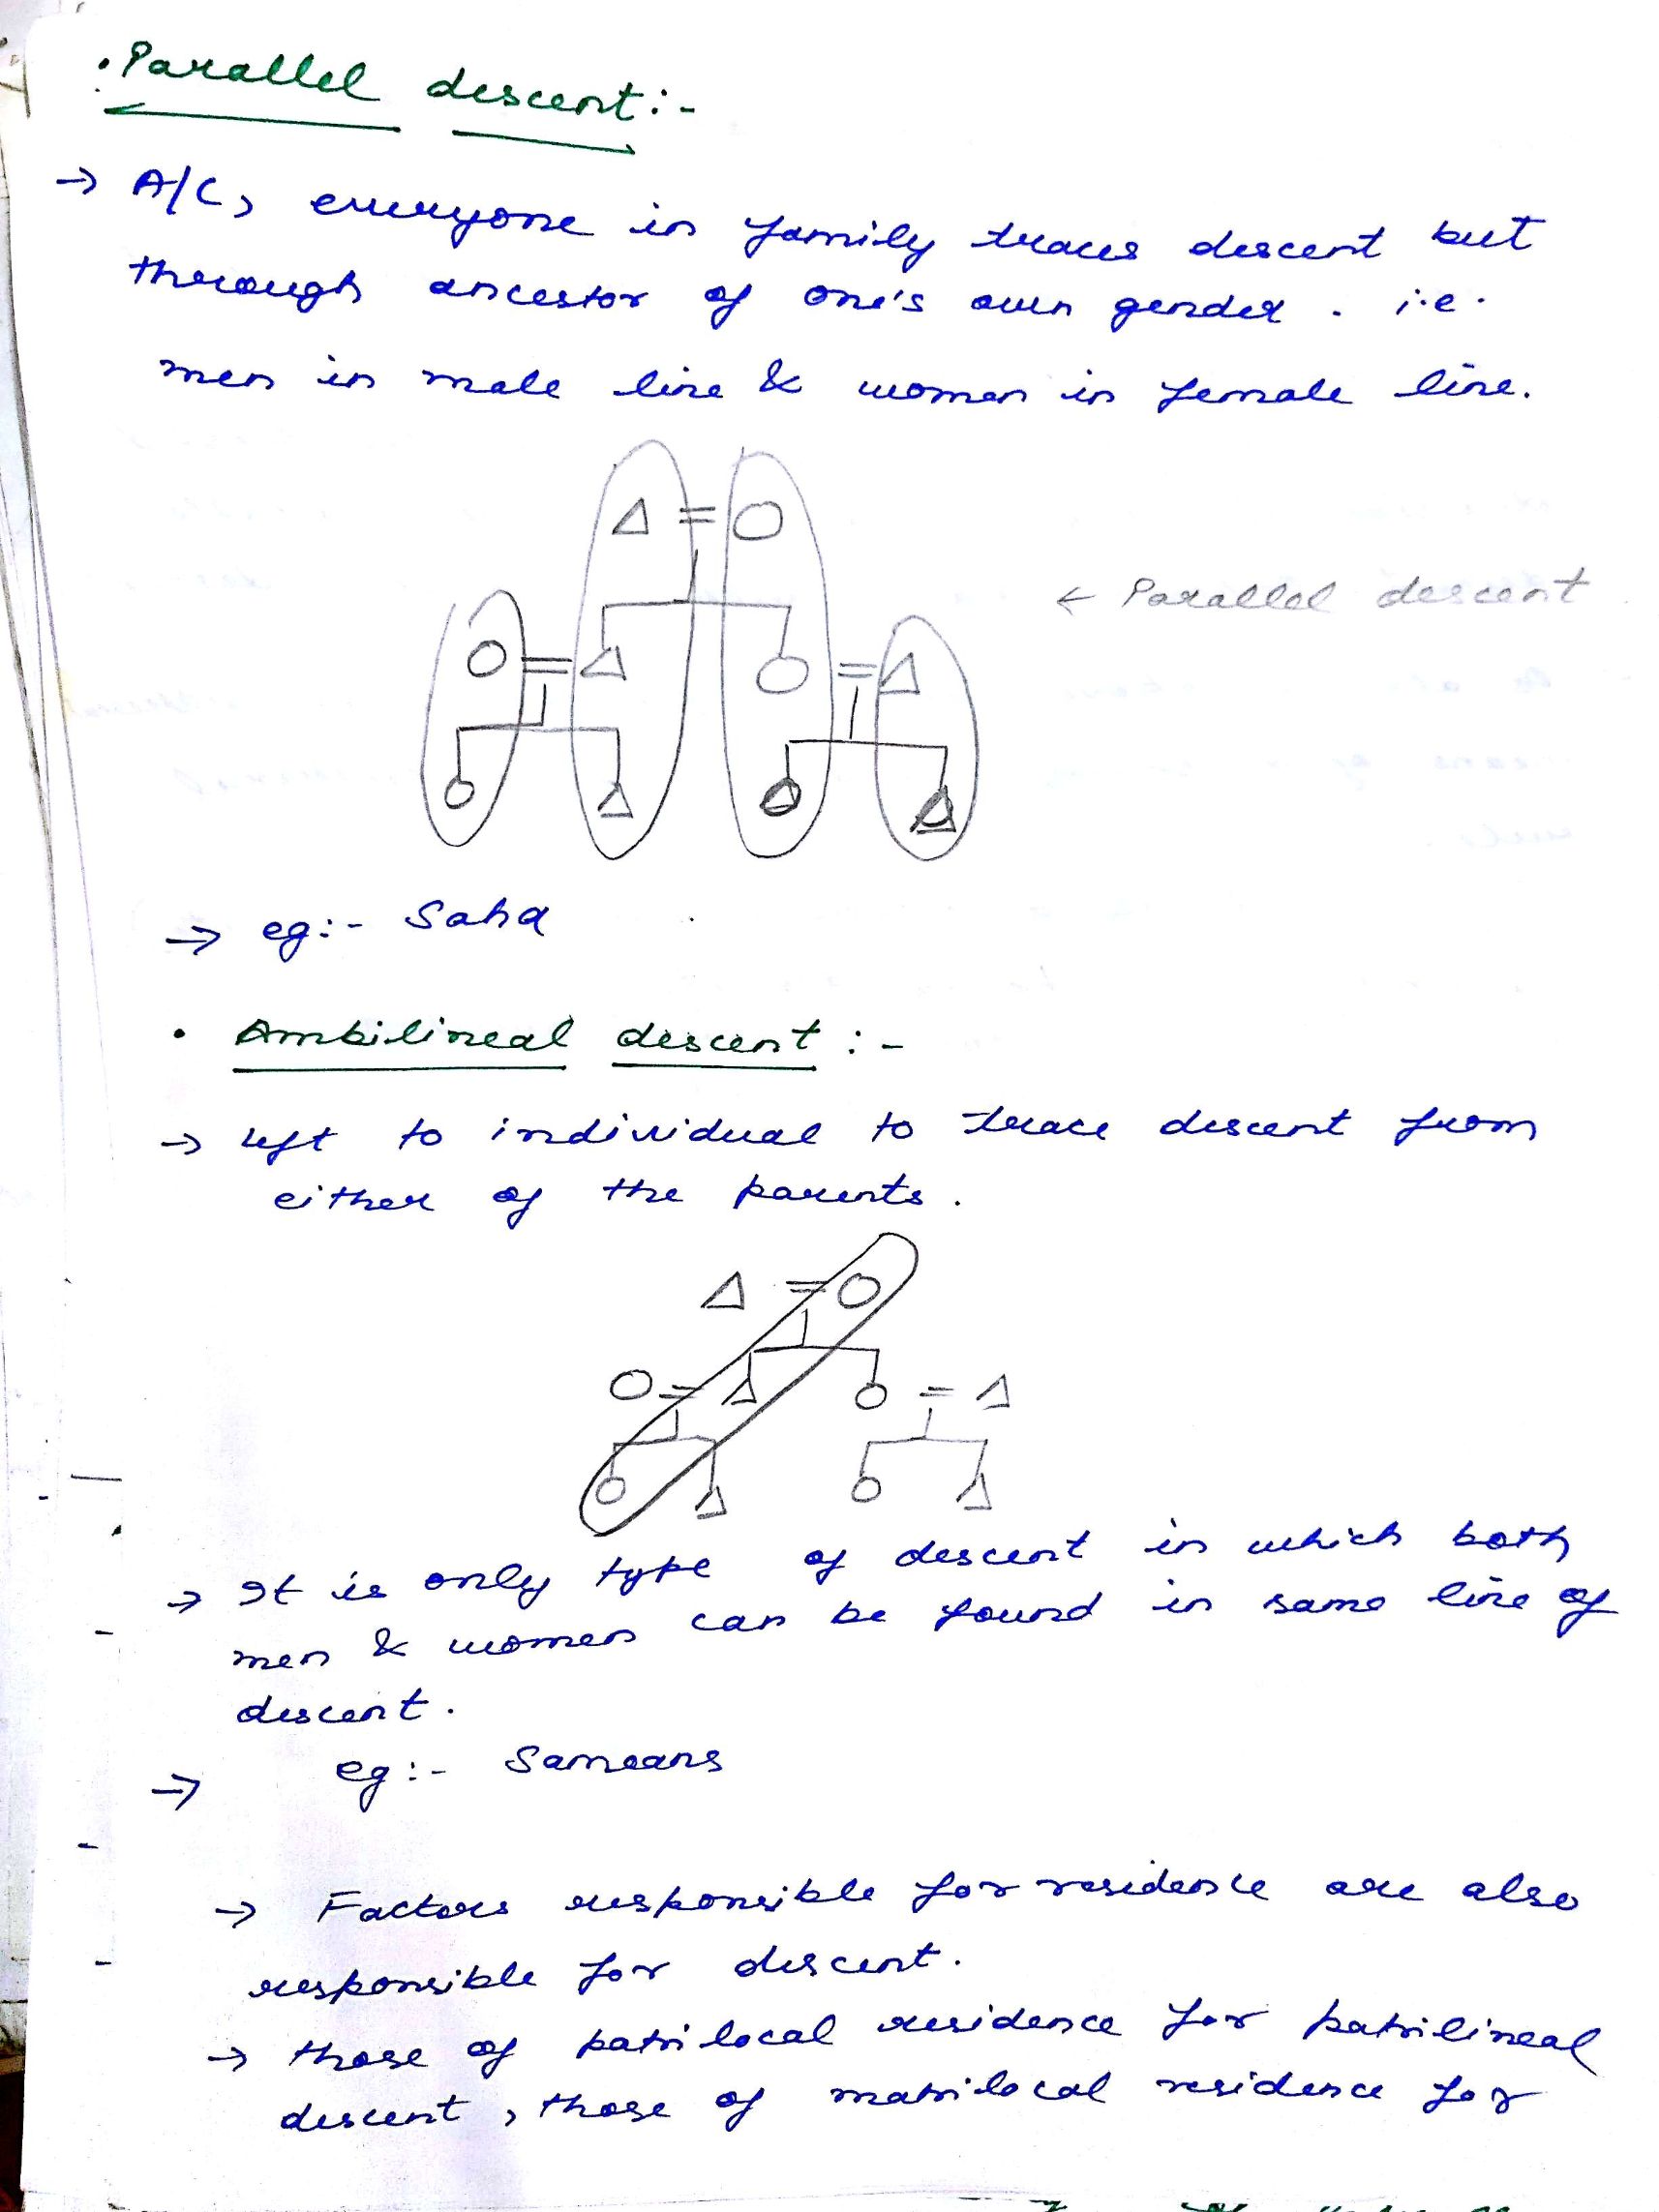 • Parallel descent :-
→ A/C, everyone in family traces descent but
through ancestor of one's own gender . i.e.
men in male line & women in female line.
← Parallel descent
→ eg:- Saha
• Ambilineal descent :-
→ left to individual to trace descent from
either of the parents .
→ It is only type of descent in which both
men & women can be found in same line of
descent .
→ eg :- Samoans
→ Factors responsible for residence are also
responsible for descent .
→ those of patrilocal residence for patrilineal
descent , those of matrilocal residence for